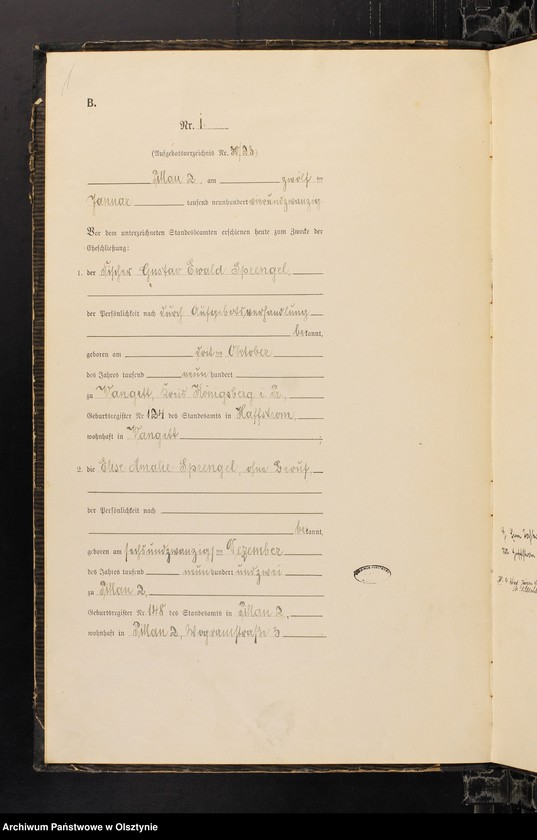 B.
Nr. 1.
(Aufgebotsverzeichnis Nr. 38/23)
Pillau 2, am zwölf ten
Januar tausend neunhundert vierundzwanzig.
Vor dem unterzeichneten Standesbeamten erschienen heute zum Zwecke der
Eheschließung:
1. der Fischer Gustav Ewald Sprengel,
der Persönlichkeit nach durch Aufgebotsverhandlung
bekannt,
geboren am ten Oktober
des Jahres tausend neun hundert
zu Wangitt, Kreis Königsberg i. Pr.,
Geburtsregister Nr. 124 des Standesamts in Haffstrom,
wohnhaft in Wangitt ;
2. die Elise Amalie Sprengel, ohne Beruf,
der Persönlichkeit nach
bekannt,
geboren am sechsundzwanzigs ten Dezember
des Jahres tausend neun hundert undzwei
zu Pillau 2,
Geburtsregister Nr. 148 des Standesamts in Pillau 2,
wohnhaft in Pillau 2, Wogramstraße 3
Archiwum Państwowe w Olsztynie